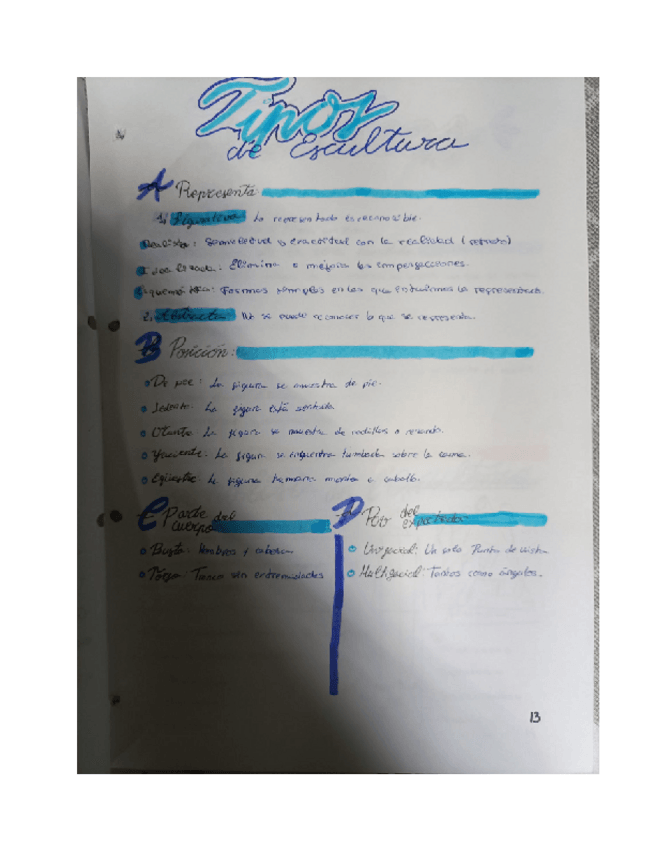 Tipos
de Escultura
A Representa
1. Figurativa: Lo representado es reconocible.
Realista: Semejanza o exactitud con la realidad (retrato)
Idealizada: Elimina o mejora las imperfecciones.
Esquemática: Formas simples en las que intuimos la representación.
2. Abstracta: No se puede reconocer lo que se representa.
B Posición:
De pie: La figura se muestra de pie.
Sedente: La figura está sentada.
Orante: La figura se muestra de rodillas o rezando.
Yacente: La figura se encuentra tumbada sobre la cama.
Ecuestre: La figura humana monta a caballo.
C Parte del
cuerpo
Busto: Hombros y cabeza
Torso: Tronco sin extremidades
D Por del
espectador
Unifacial: Un solo Punto de vista
Multifacial: Tantos como ángulos.
13